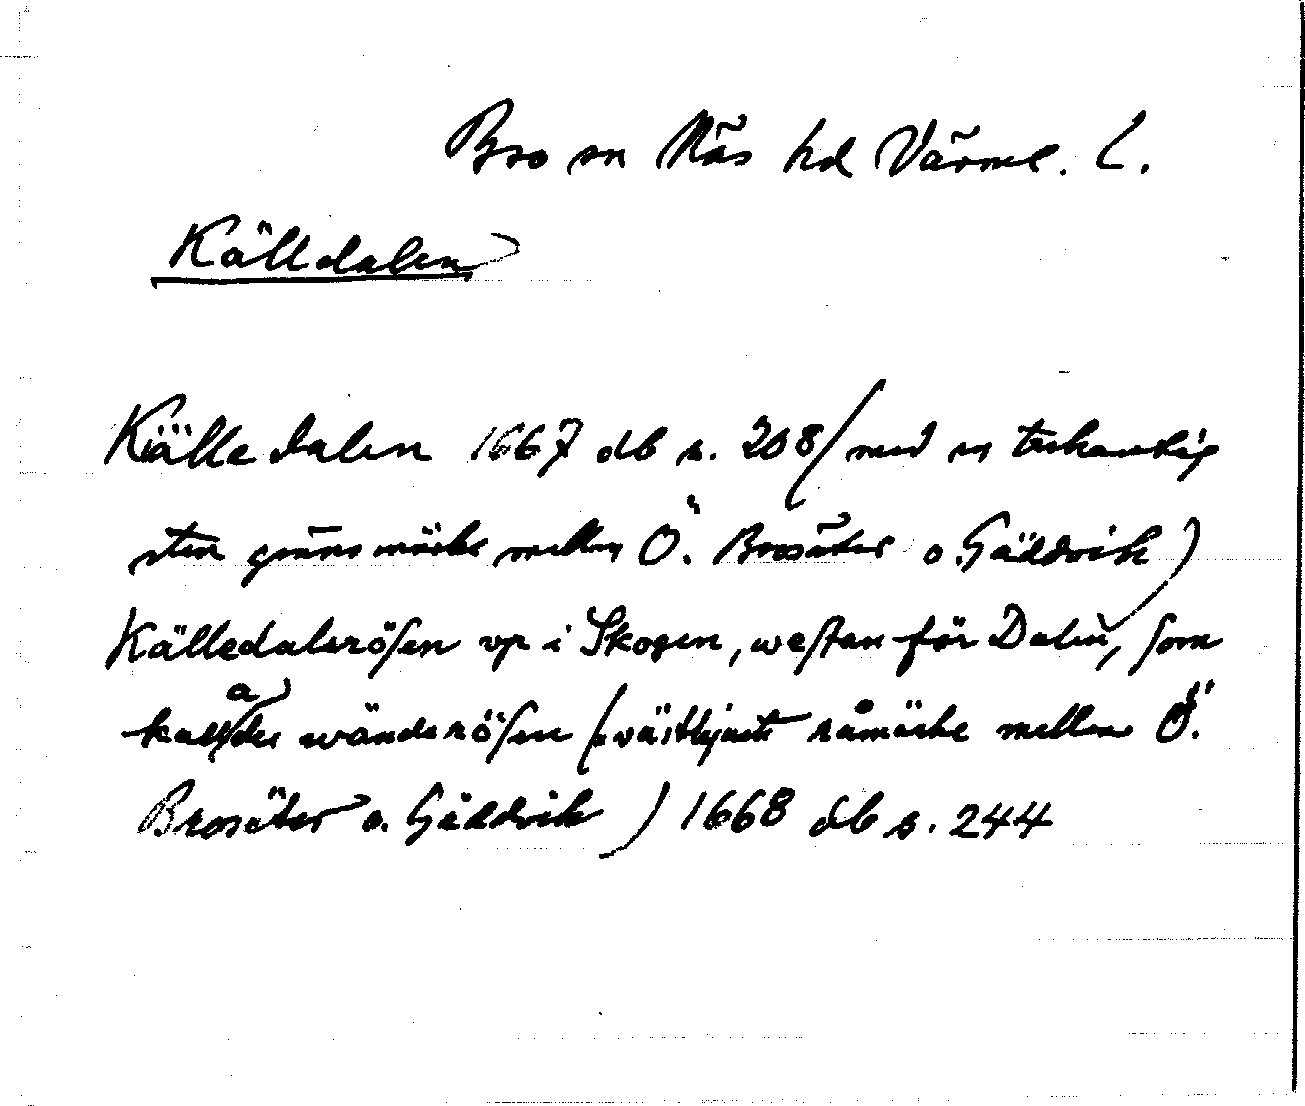 Bro sn Näs hd Värml. L.
Källdalen
Källe dalen 1667 db s. 208 (med en trekantig
sten gränsmärke mellan Ö. Brosäter o. Gäddvik)
Källedalsrösen vp i Skogen, westan för Dalin, som
kallades wänderösen (västligaste råmärke mellan Ö.
Brosäter o. Gäddvik) 1668 db s. 244